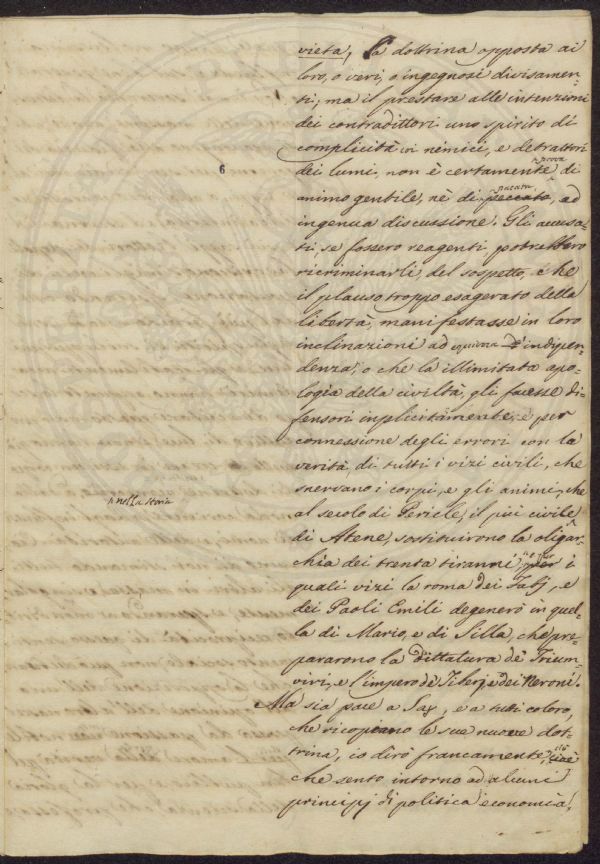 vieta, la dottrina opposta ai
loro, o veri, o ingegnosi divisamen-
ti; ma il prestare alle intenzioni
dei contradittori uno spirito di
complicità in nemici, e detrattori
prova
6 dei lumi, non è certamente di
pacata
animo gentile, nè di peccato, ad
ingenua discussione. Gli accusa-
ti, se fossero reagenti potrebbero
ricriminarli, del sospetto, che
il plauso troppo esagerato della
libertà, manifestasse in loro
inclinazioni ad d'indipen-
denza, o che la illimitata apo-
logia della civiltà, gli facesse di-
fensori inplicitamente, e per
connessione degli errori con la
verità, di tutti i vizi civili, che
snervano i corpi, e gli animi, che
nella storia
al secolo di Pericle, il più civile
di Atene, sostituirono la oligar-
chia dei trenta tiranni, per i
quali vizi la roma dei Fabj, e
dei Paoli Emili degenerò in quel-
la di Mario, e di Silla, che pre-
pararono la dittatura de' Trium-
viri, e l'impero de' Tiberj, e dei Neroni.
Ma sia pace a Say, e a tutti coloro,
che ricopiano le sue nuove dot-
trina, io dirò francamente, ciò cioè
che sento intorno ad alcuni
principj di politica economia,